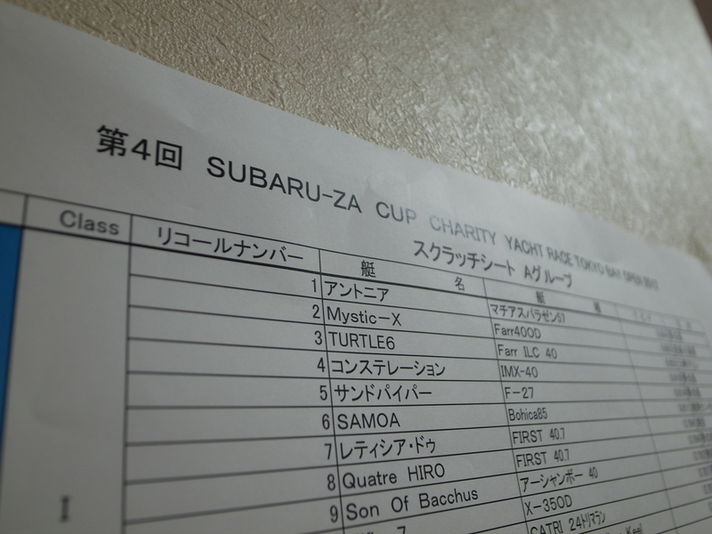 第4回 SUBARU-ZA CUP CHARITY YACHT RACE TOKYO BAY OPEN
スクラッチシート Aグループ
Class リコールナンバー 艇 名 艇
1 アントニア
2 Mystic-X Farr40OD
3 TURTLE6 Farr ILC 40
4 コンステレーション IMX-40
5 サンドパイパー F-27
6 SAMOA Bohica85
7 レティシア・ドゥ FIRST 40.7
8 Quatre HIRO FIRST 40.7
9 Son Of Bacchus アーシャンボー 40
X-35OD
CATRI 24トリマラン
I